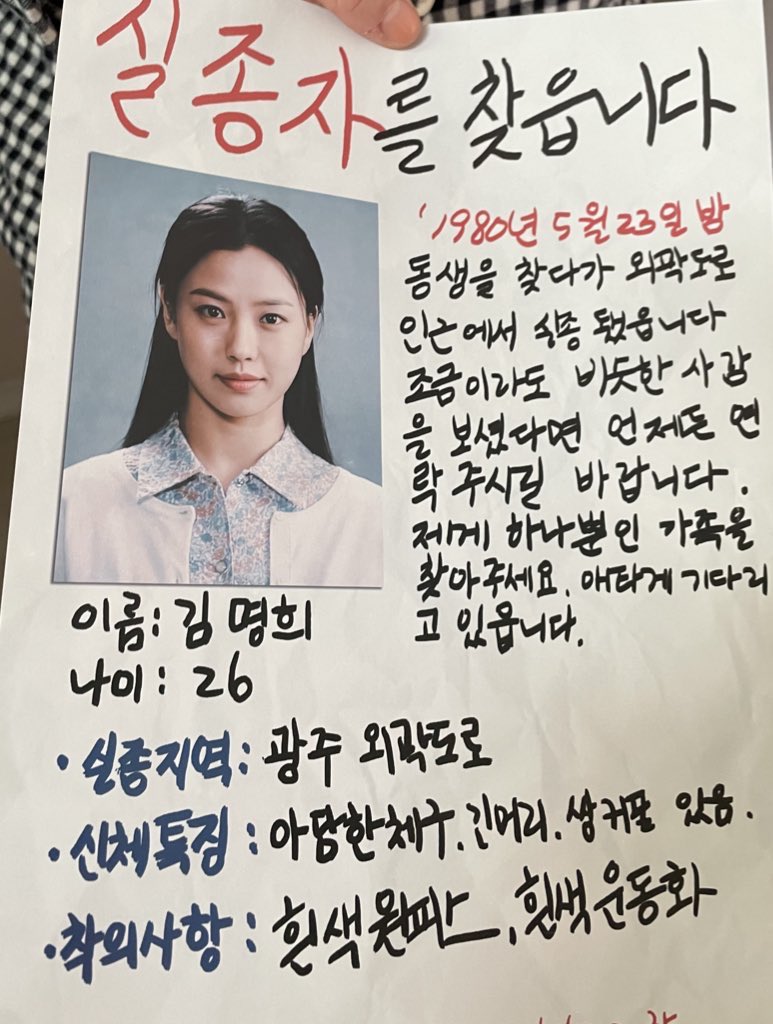 실종자를 찾읍니다
'1980년 5월 23일 밤
동생을 찾다가 외곽도로
인근에서 실종 됐읍니다
조금이라도 비슷한 사람
을 보셨다면 언제든 연
락 주시길 바랍니다.
제게 하나뿐인 가족을
찾아주세요. 애타게 기다리
고 있읍니다.
이름: 김명희
나이: 26
· 실종지역: 광주 외곽도로
· 신체특징: 아담한체구. 긴머리. 쌍커풀 있음.
· 착의사항: 흰색 원피스, 흰색 운동화